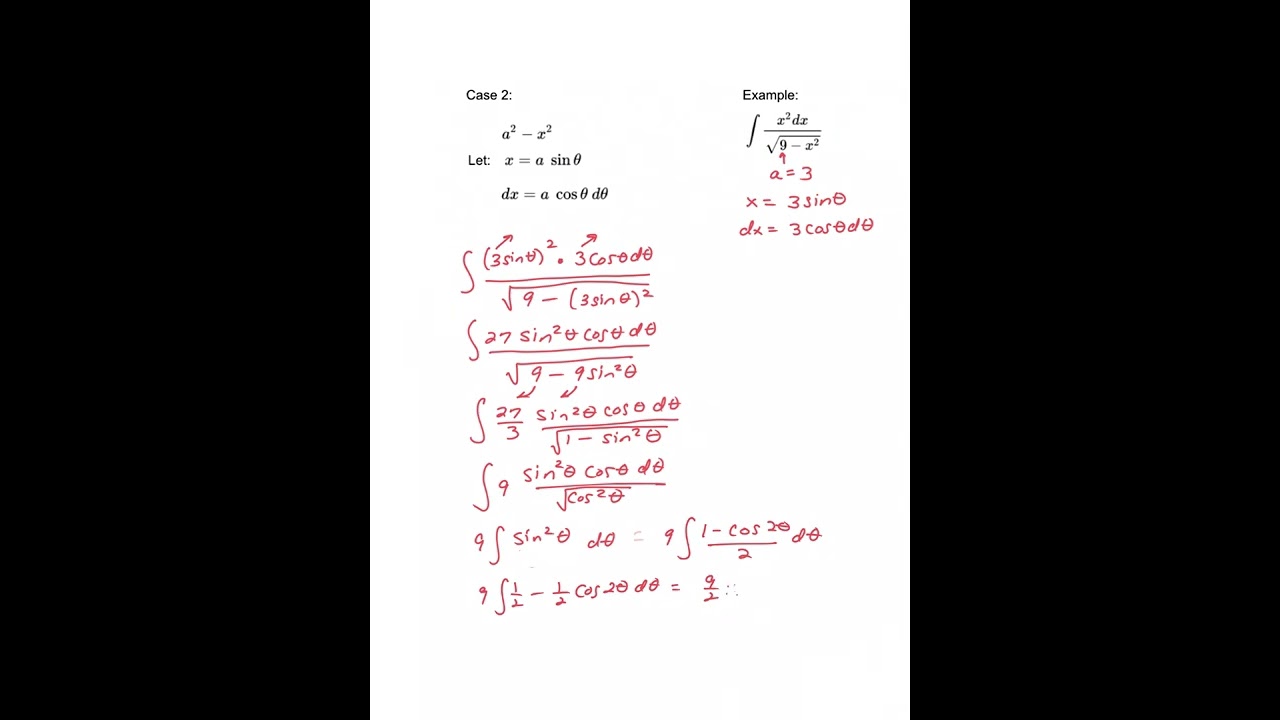 Case 2:
a² − x²
Let: x = a sin θ
dx = a cos θ dθ
Example:
∫ x²dx / √(9 − x²)
a = 3
x = 3 sinθ
dx = 3 cosθ dθ
∫ (3 sinθ)² · 3 cosθ dθ / √(9 − (3 sin θ)²)
∫ 27 sin²θ cosθ dθ / √(9 − 9 sin²θ)
∫ 27/3 sin²θ cosθ dθ / √(1 − sin²θ)
∫ 9 sin²θ cosθ dθ / √(cos²θ)
9 ∫ sin²θ dθ = 9 ∫ (1 − cos 2θ)/2 dθ
9 ∫ 1/2 − 1/2 cos 2θ dθ = 9/2